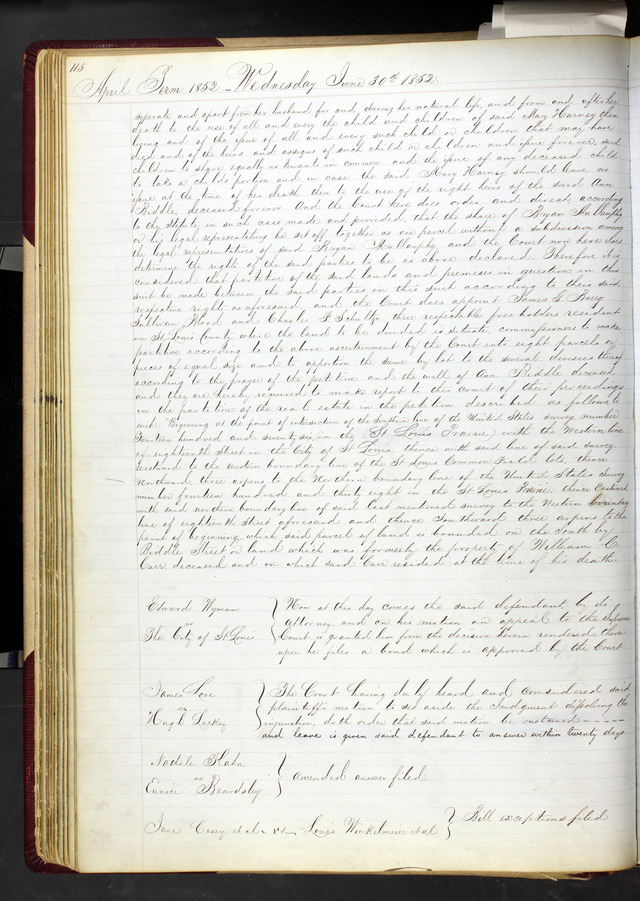 115
April Term 1852 - Wednesday June 30th 1852.
seperate and apart from her husband for and during her natural life, and from and after her
death to the use of all and every the child and children of said Mary Harney then
living and of the issue of all and every such child or children that may have
died and of the heirs and assigns of such child or children and issue forever, said
children to share equally as tenants in common and the issue of any deceased child
to take a childs portion and in case the said Mary Harney should leave no
issue at the time of her death then to the use of the right heirs of the said Ann
Biddle deceased forever. And the Court here does order and direct, according
to the statute in such case made and provided, that the share of Bryan Mullanphy
or his legal representatives be set off together as one parcel without a subdivision among
the legal representatives of said Bryan Mullanphy and the Court now here does
determine the rights of the said parties to be as above declared. Therefore it is
considered that partition of the said lands and premises in question in this
suit be made between the said parties in this suit according to their said
respective rights as aforesaid and the Court does appoint James G. Barry
Sullivan Blood and Charles F. Schultze three respectable free holders resident
in St Louis County where the land to be divided is situate, commissioners to make
partition according to the above ascertainment by the Court into eight parcels or
pieces of equal size and to apportion the same by lot to the several devisees thereof
according to the prayer of the petition and the will of Ann Biddle deceased
and they are hereby required to make report to this court of their proceedings
in the partition of the real estate in the petition described as follows to
wit: Beginning at the point of intersection of the Southern line of the United States survey number
Fourteen hundred and seventy six, in the (St. Louis Prairie) with the Western line
of eighteenth Street in the City of St Louis, thence with said line of said survey
Westward to the western boundary line of the St Louis Common Field lots, thence
Northward three arpens to the Northern boundary line of the United States Survey
number fourteen hundred and thirty eight in the St Louis Prairie thence Eastward
with said northern boundary line of said last mentioned survey to the Western boundary
line of eighteenth Street aforesaid and thence Southward three arpens to the
point of beginning, which said parcel of land is bounded on the South by
Biddle Street or land which was formerly the property of William C.
Carr deceased and on which said Carr resided at the time of his death.
Edward Wyman
vs
The City of St Louis
Now at this day comes the said defendant by its
attorney and on his motion an appeal to the Supreme
Court is granted him from the decision herein rendered, there
upon he files a bond which is approved by the Court
James Love
vs
Hugh Lackey
The Court having duly heard and considered said
plaintiff's motion to set aside the Judgment dissolving the
injunction, doth order that said motion be sustained
and leave is given said defendant to answer within twenty days
vs
Eunice Beardsley
Amended answer filed
Jane Casey et al vs Louis Winkelmeier et al
Bill exceptions filed